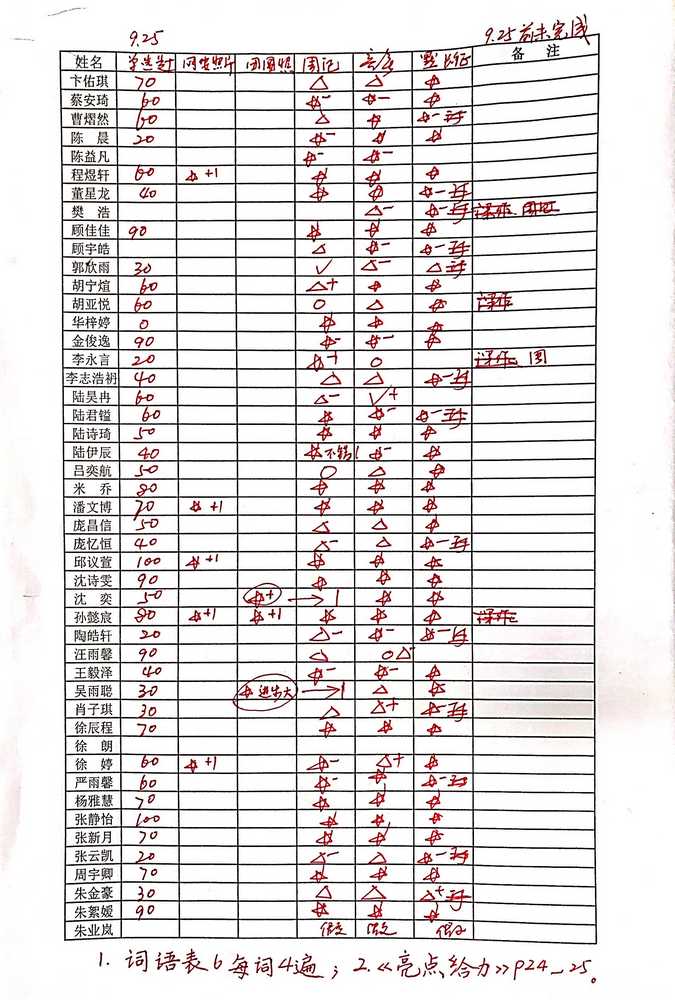 9.25 9.25前未完成
姓名 团团照 周记 默长征 备注
卞佑琪 70 △ △ ☆
蔡安琦 60 ☆- ☆- ☆
曹熠然 60 △ ☆ ☆-
陈晨 20 ☆- ☆ ☆
陈益凡 ☆- ☆-
程煜轩 60 ☆+1 ☆ ☆ ☆
董星龙 40 ☆ ☆ ☆-
樊浩 △- ☆-
顾佳佳 90 ☆ ☆ ☆
顾宇皓 △ ☆- ☆-
郭欣雨 30 ✓ △- △
胡宁煊 60 △+ ☆ ☆
胡亚悦 60 ○ △ ☆
华梓婷 0 ☆ ☆ ☆
金俊逸 90 ☆- ☆- ☆
李永言 20 ☆+ ○ 周
李志浩礽 40 △ △ ☆-
陆昊冉 60 △- ✓+
陆君镒 60 ☆ ☆- ☆-
陆诗琦 50 ☆ ☆ ☆
陆伊辰 40 ☆不错! ☆- ☆
吕奕航 50 ○ △ ☆
米乔 80 ☆ ☆ ☆
潘文博 70 ☆+1 ☆ ☆ ☆
庞昌信 50 △ △ ☆
庞忆恒 40 △- △ ☆-
邱议萱 100 ☆+1 ☆ ☆ ☆
沈诗雯 90 ☆ ☆ ☆
沈奕 50 ☆+ → 1 ☆ ☆
孙懿宸 80 ☆+1 ☆+1 ☆ ☆ ☆
陶皓轩 20 △- ☆- ☆-
汪雨馨 90 △ ○△-
王毅泽 40 ☆- ☆- ☆
吴雨聪 30 ☆进步大 → 1 △ ☆
肖子琪 30 △ △+ ☆-
徐辰程 70 ☆ ☆ ☆
徐朗
徐婷 60 ☆+1 ☆- △+ ☆
严雨馨 60 ☆- ☆ ☆-
杨雅慧 70 ☆ ☆ ☆
张静怡 100 ☆ ☆ ☆
张新月 70 ☆ ☆ ☆
张云凯 20 △- △ ☆-
周宇卿 70 ☆ ☆ ☆
朱金豪 30 △ △ △+
朱絮媛 90 ☆ ☆ ☆
朱业岚
1. 词语表6每词4遍；2.《亮点给力》P24-25。